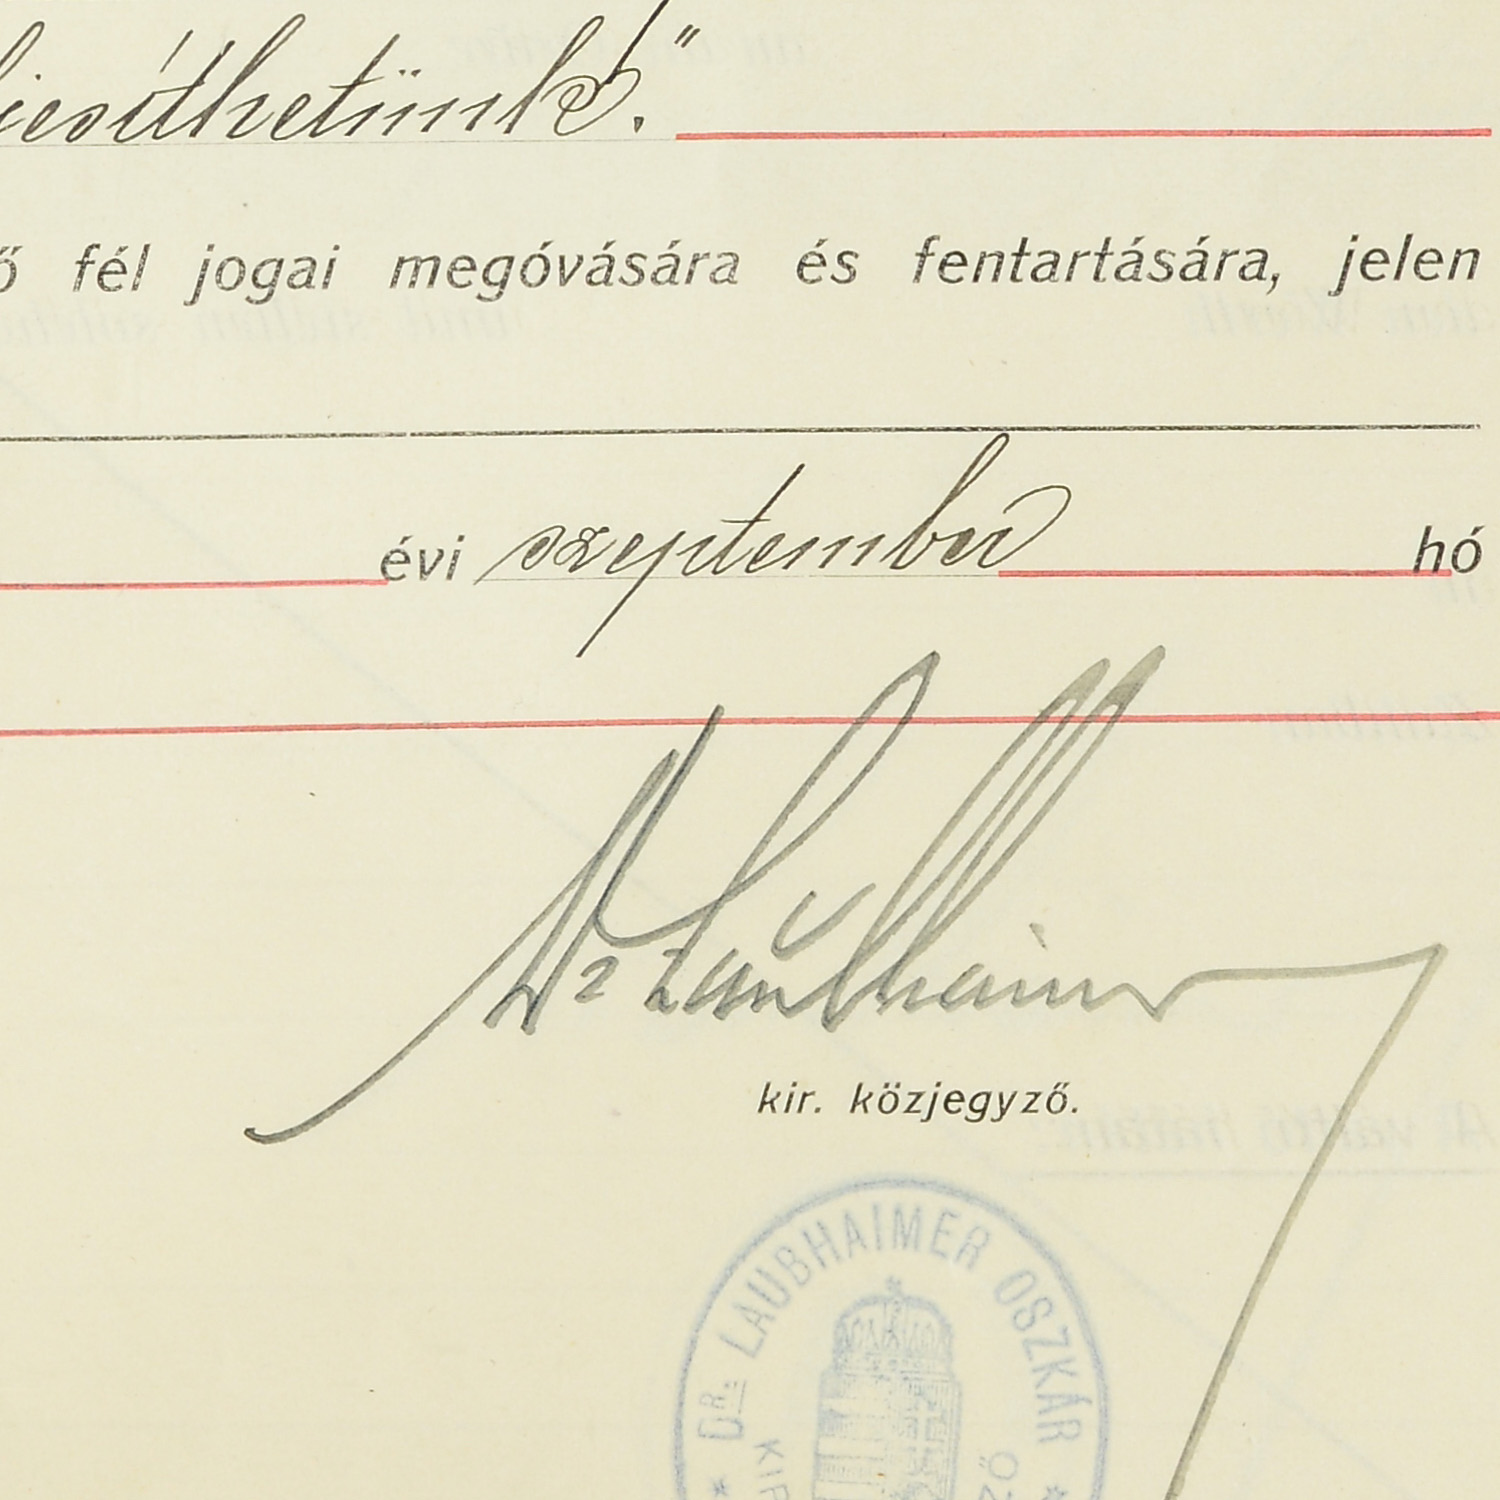 ő fél jogai megóvására és fentartására, jelen
évi szeptember hó
Dr Laubhaimer
kir. közjegyző.
DR. LAUBHAIMER OSZKÁR